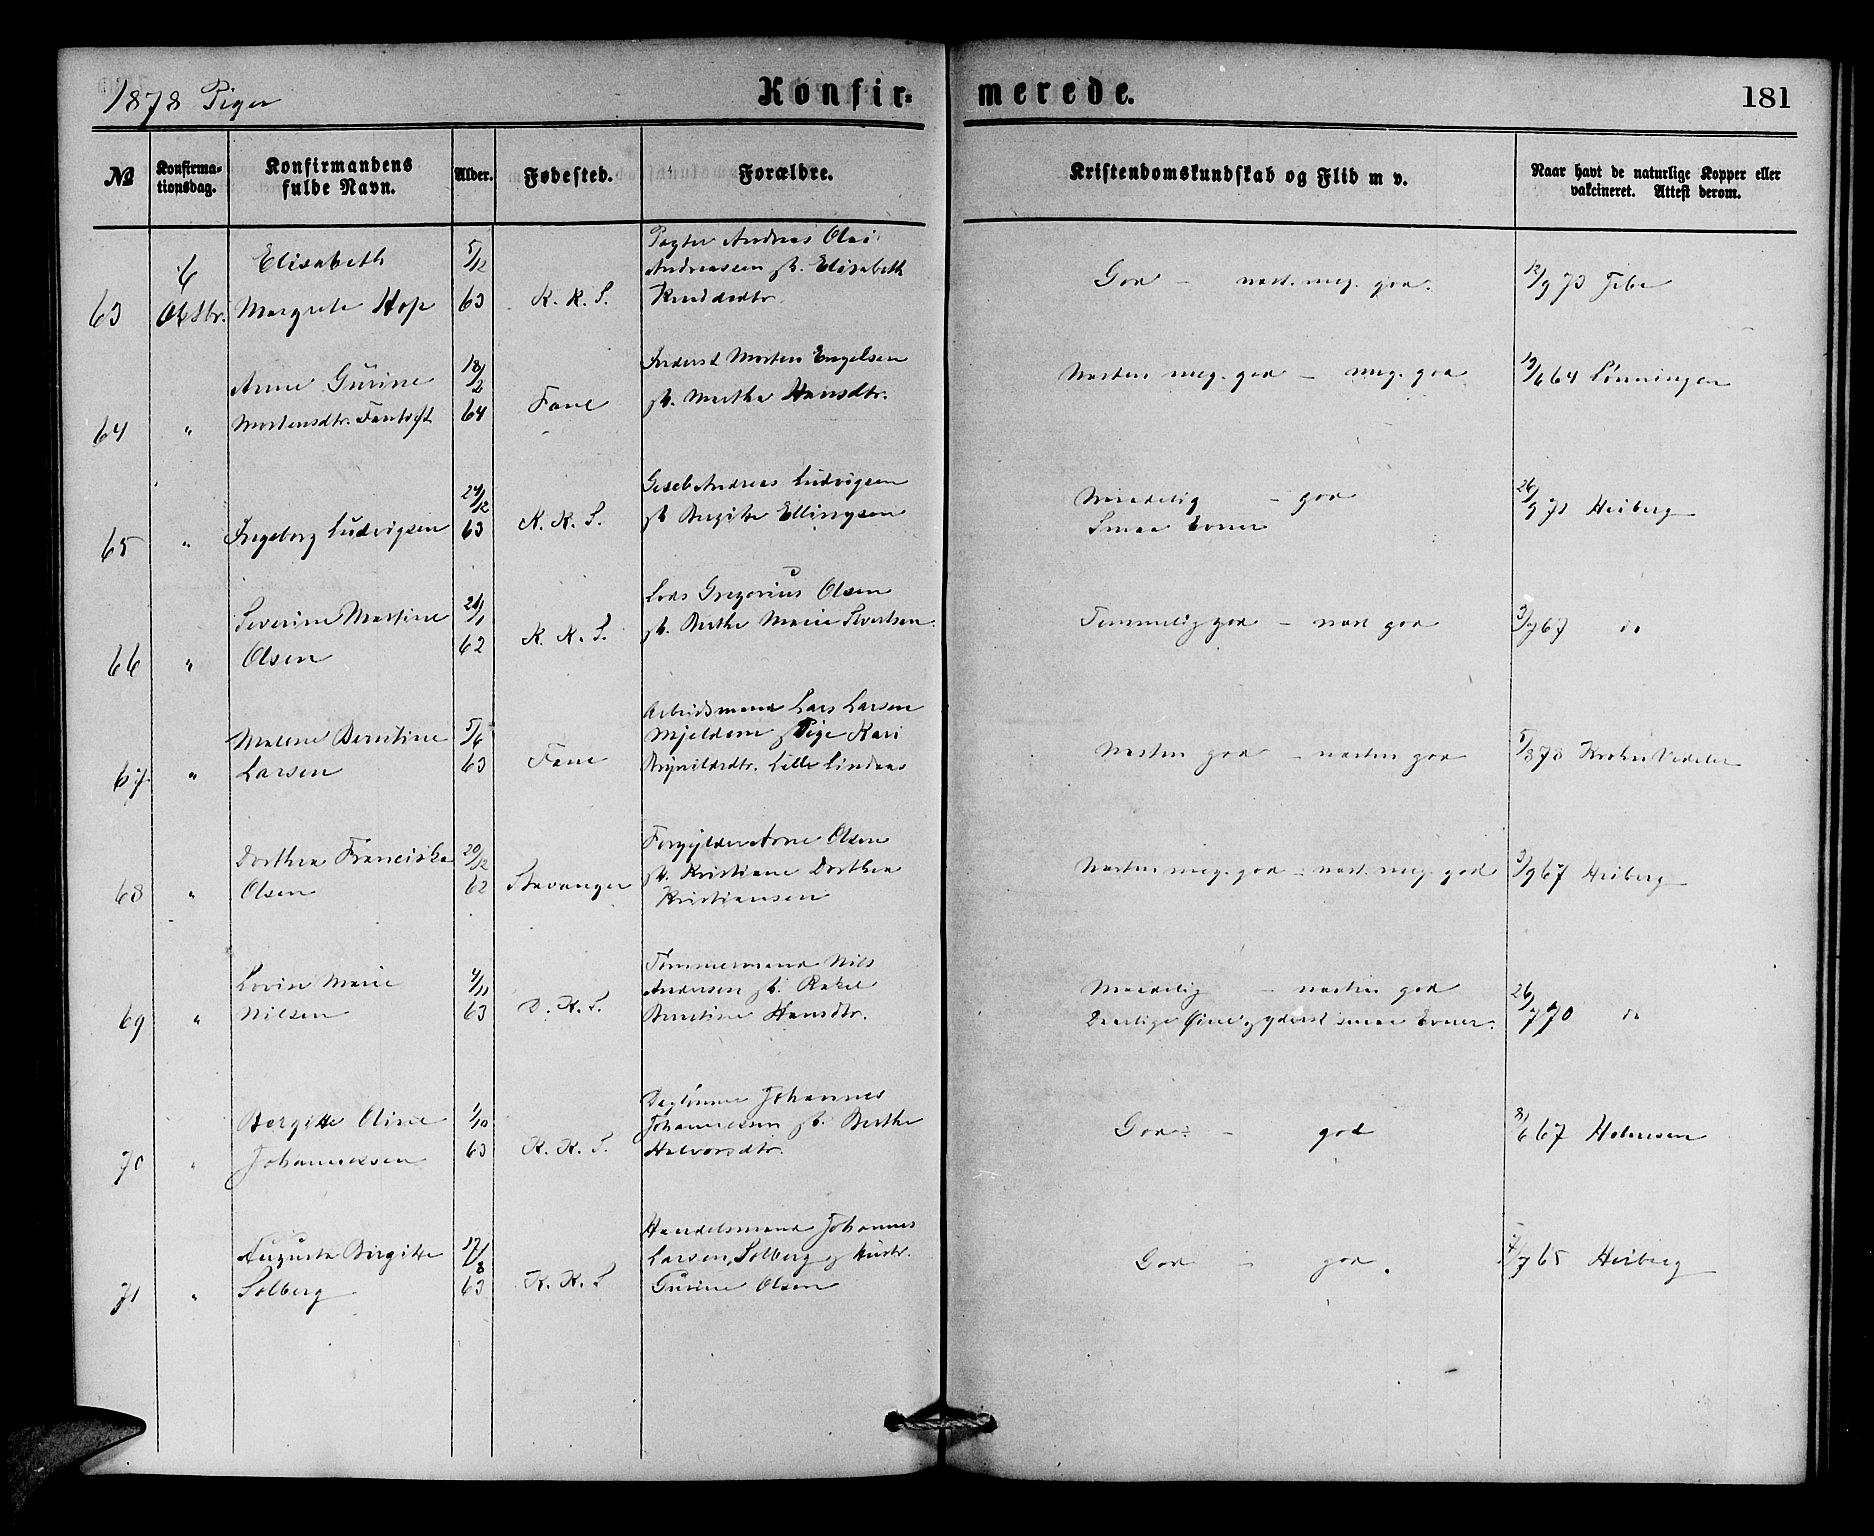 1878 Piger
Konfir=
merede.
181
№
Konfirma-
tionsdag.
Konfirmandens
fulde Navn.
Alder.
Fødested.
Forældre.
Kristendomskundskab og Flid m v.
Naar havt de naturlige Kopper eller
vakcineret. Attest derom.
63
6
Oktbr.
Elisabeth
Margrete Hop
5/12
63
K. K. S.
Andreas Olai
Andreassen Elisabeth
Knudsdtr.
God - næst. meg. god.
12/9 73
64
"
Anne Gurine
Mortensdtr. Fantoft
18/2
64
Fane
Inderst Morten Engelsen
Marthe Hansdtr.
Næsten meg. god - meg. god
64 Lønningen
65
"
Ingeborg Ludvigsen
24/12
63
K. K. S.
Andreas Ludvigsen
Birgitte Ellingsen
Maadelig - god
Smaa Evner
26/9 71 Heiberg
66
"
Severine Martine
Olsen
21/1
62
K. K. S.
Lods Gregorius Olsen
Berthe Marie Sivertsen
Temmelig god - næst god
67 do
67
"
Malene Berntine
Larsen
5/6
63
Fane
Arbeidsmand Lars Larsen
Mjeldem Pige Kari
Brynildsdtr. Lille Lindaas
Næsten god - næsten god
5/8 78 Krohn Vedeler
68
"
Dorthea Franciska
Olsen
20/12
62
Stavanger
Forgylder Arne Olsen
Kristiane Dorthea
Kristiansen
Næsten meg. god - næst. meg. god
3/9 67 Heiberg
69
"
Lovise Marie
Nilsen
4/11
63
D. K. S.
Tømmermand Nils
Andersen Rakel
Berntine Hansdtr.
Maadelig - næsten god
Daarlige Øine og yderst smaa Evner.
26/7 70 do
70
"
Bergitte Oline
Johannessen
1/10
63
K. K. S.
Daglønner Johannes
Johannessen Berthe
Halvorsdtr.
God - god
8/6 67 Holmesen
71
"
Augusta Birgitte
Solberg
17/8
63
K. K. S
Handelsmand Johannes
Larsen Solberg og Hustr.
Gurine Olsen
God - god.
65 Heiberg